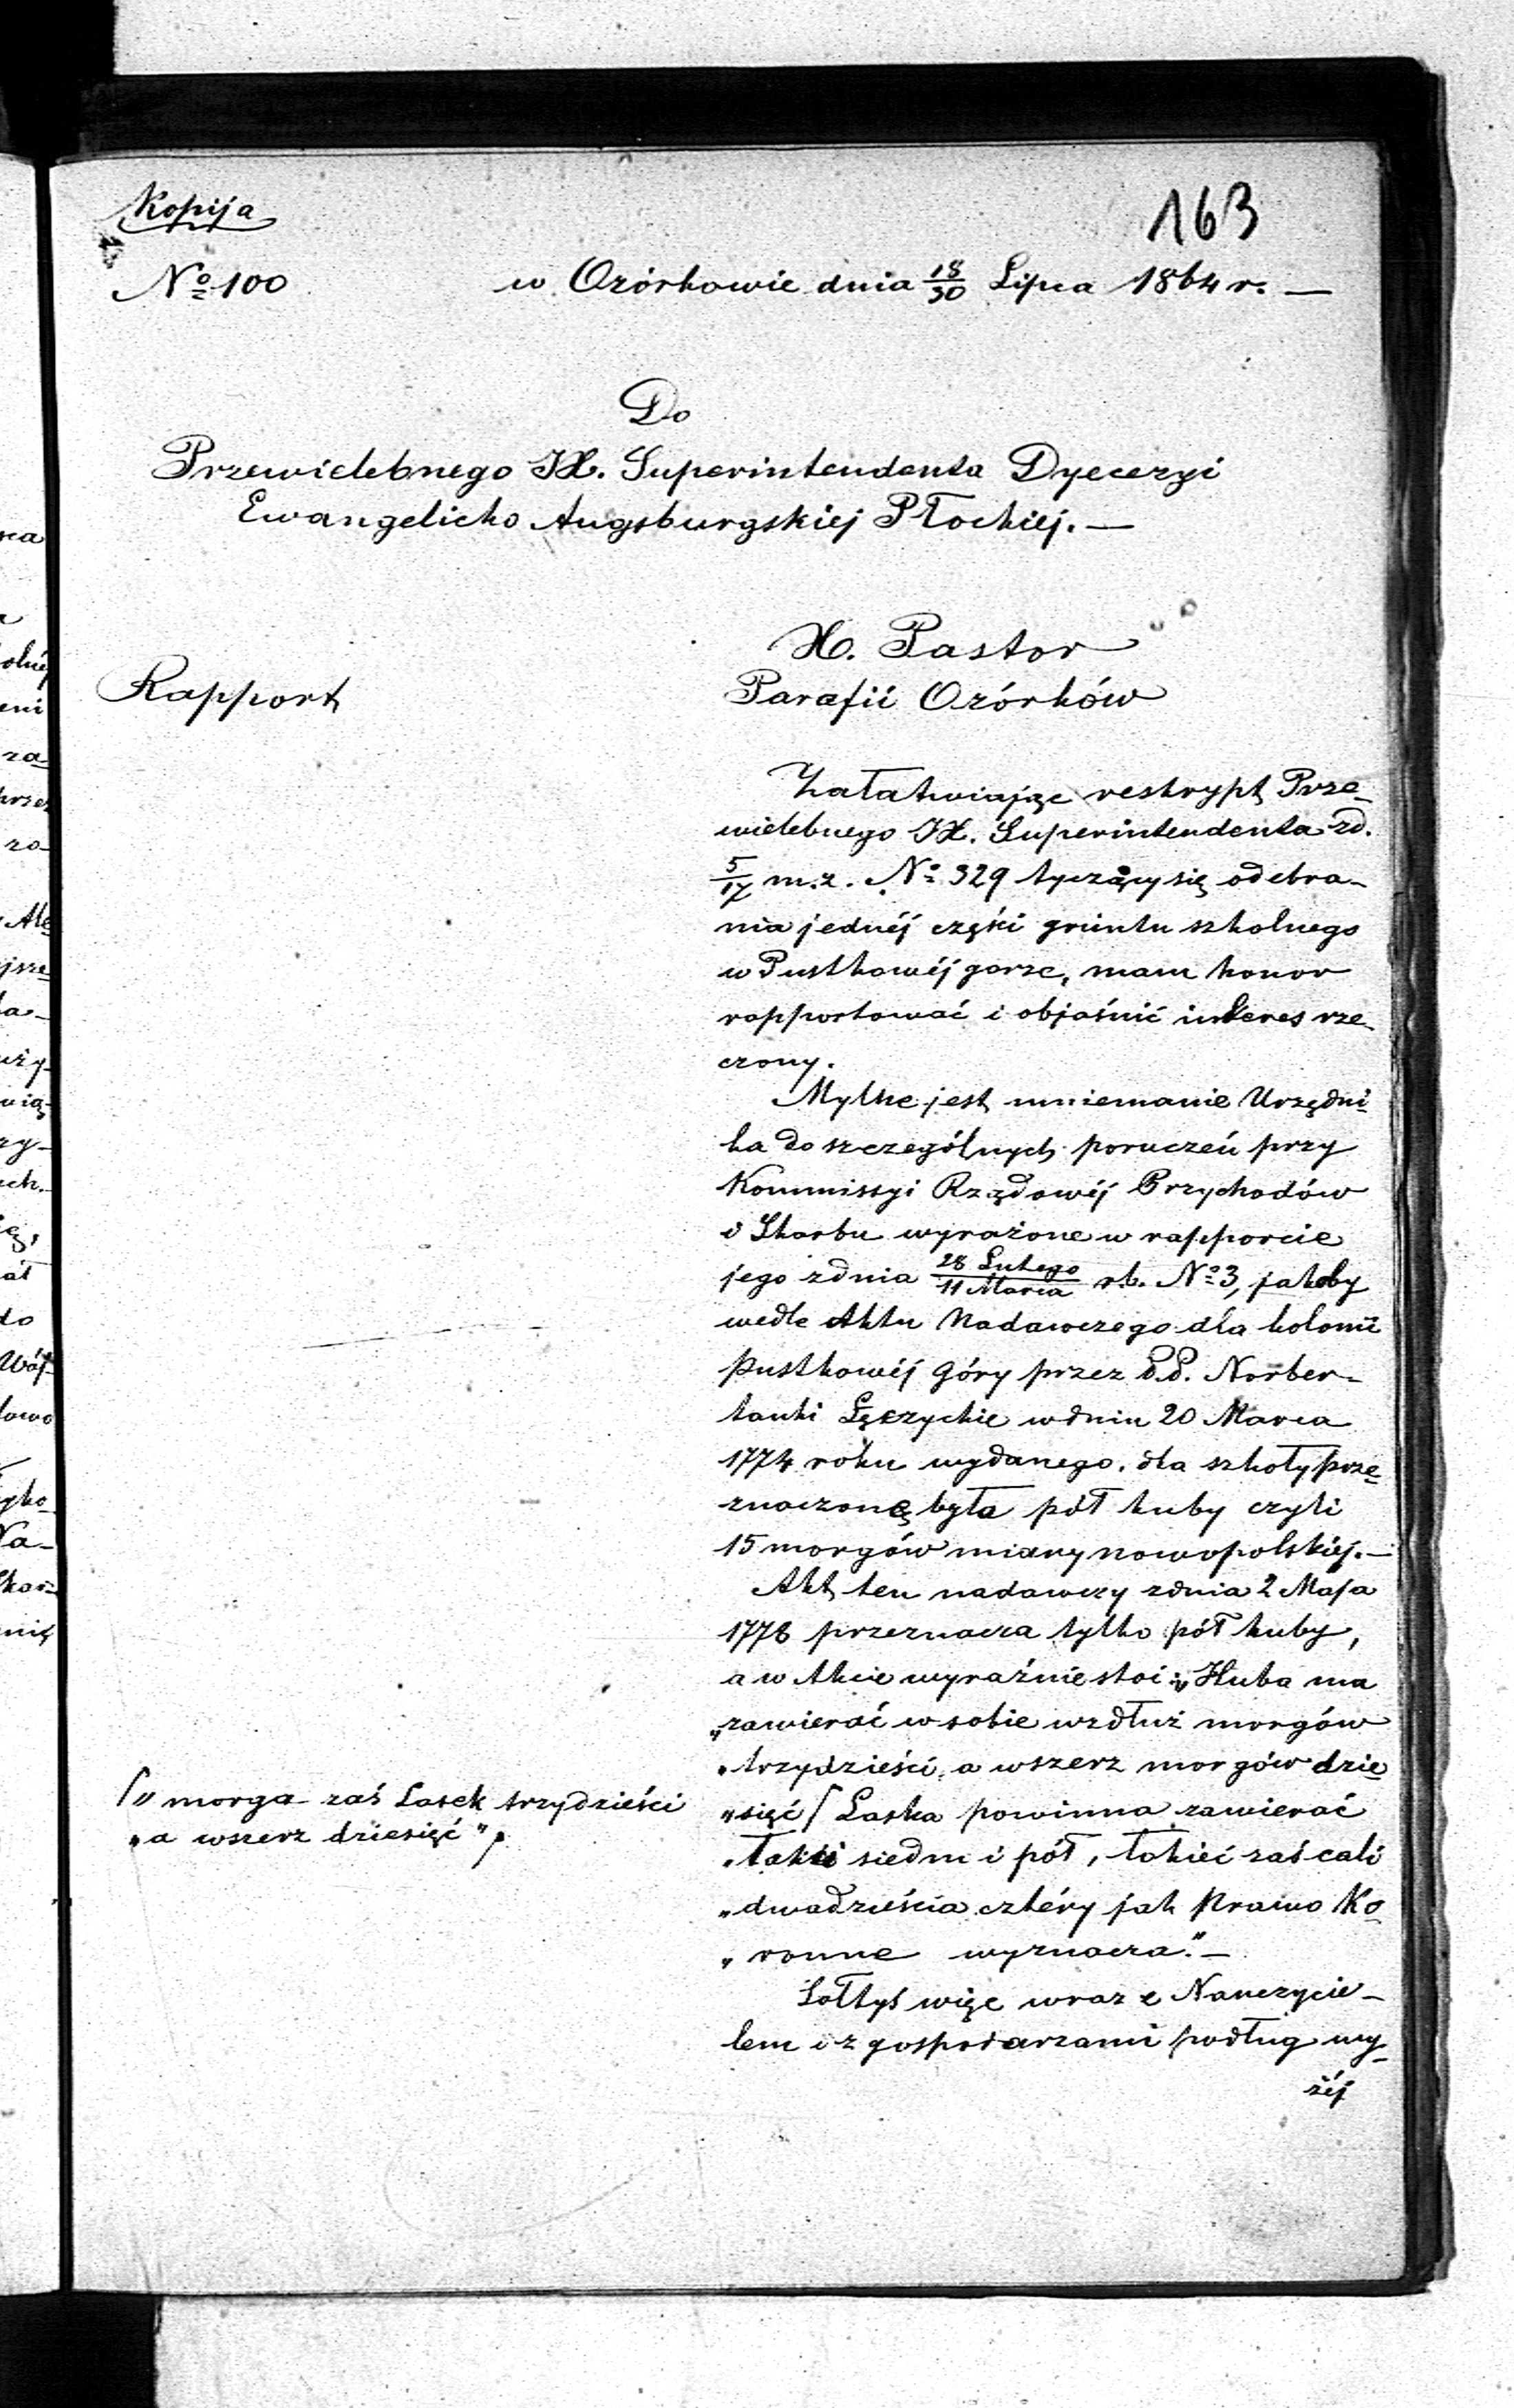 Kopija
163
№ 100
w Ozórkowie dnia 18/30 Lipca 1864 r. —
Do
Przewielebnego JX. Superintendenta Dyecezyi
Ewangelicko Augsburgskiej Płockiej. —
X. Pastor
Rapport
Parafii Ozórków
Załatwiając reskrypt Prze-
wielebnego JX. Superintendenta zd.
5/17 m.z. № 329 tyczący się odebra-
nia jednéj części gruntu szkolnego
w Pustkowéj gorze, mam honor
rapportować i objaśnić interes rze-
czony.
Mylne jest mniemanie Urzędni-
ka do szczególnych poruczeń przy
Kommissyi Rządowéj Przychodów
i Skarbu wyrażone w rapporcie
jego z dnia 28 Lutego/11 Marca rb. № 3, jakoby
wedle Aktu Nadawczego dla kolonii
Pustkowéj Góry przez P.P. Norber-
tanki Łęczyckie w dniu 20 Marca
1774 roku wydanego, dla szkoły prze-
znaczoną była pół huby czyli
15 morgów miary nowopolskiéj. —
Akt ten nadawczy z dnia 2 Maja
1778 przeznacza tylko pół huby,
a w Akcie wyraźnie stoi: „Huba ma
„zawierać w sobie wzdłuż morgów
„trzydzieści, a wszerz morgów dzie-
⌠„morga zaś Lasek trzydzieści
„a wszerz dziesięć”,
„sięć ⌠ Laska powinna zawierać
„łokci siedm i pół, łokieć zaś cali
„dwadzieścia cztéry jak Prawo Ko-
„ronne wyznacza.” —
Sołtys więc wraz z Nauczycie-
lem i z gospodarzami podług wy-
żéj